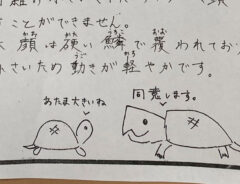 ことができません。
顔は硬い鱗で覆われてお
さいため動きが軽やかです。
あたま大きいね
同意します。